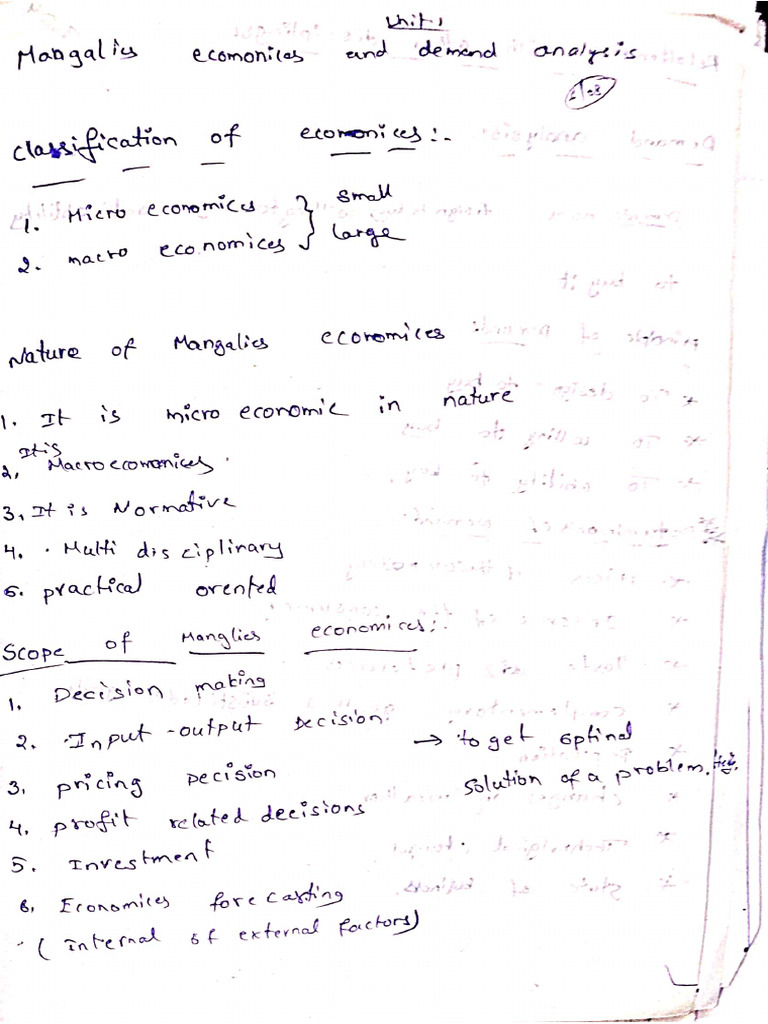 Unit 1
Mangalies ecomonices and demand analysis
Classification of economices:-
1. Micro economices } small
2. macro economices } large
Nature of Mangalies economices
1. It is micro economic in nature
2, It is Macroeconomices.
3, It is Normative
4. . Multi disciplinary
5. practical orented
Scope of Manglies economices:-
1. Decision making
2. Input -output Decision.
3. pricing Decision → to get optinal
solution of a problem.
4. profit related decisions
5. Investment
6. Economices fore casting
( internal of external factors)